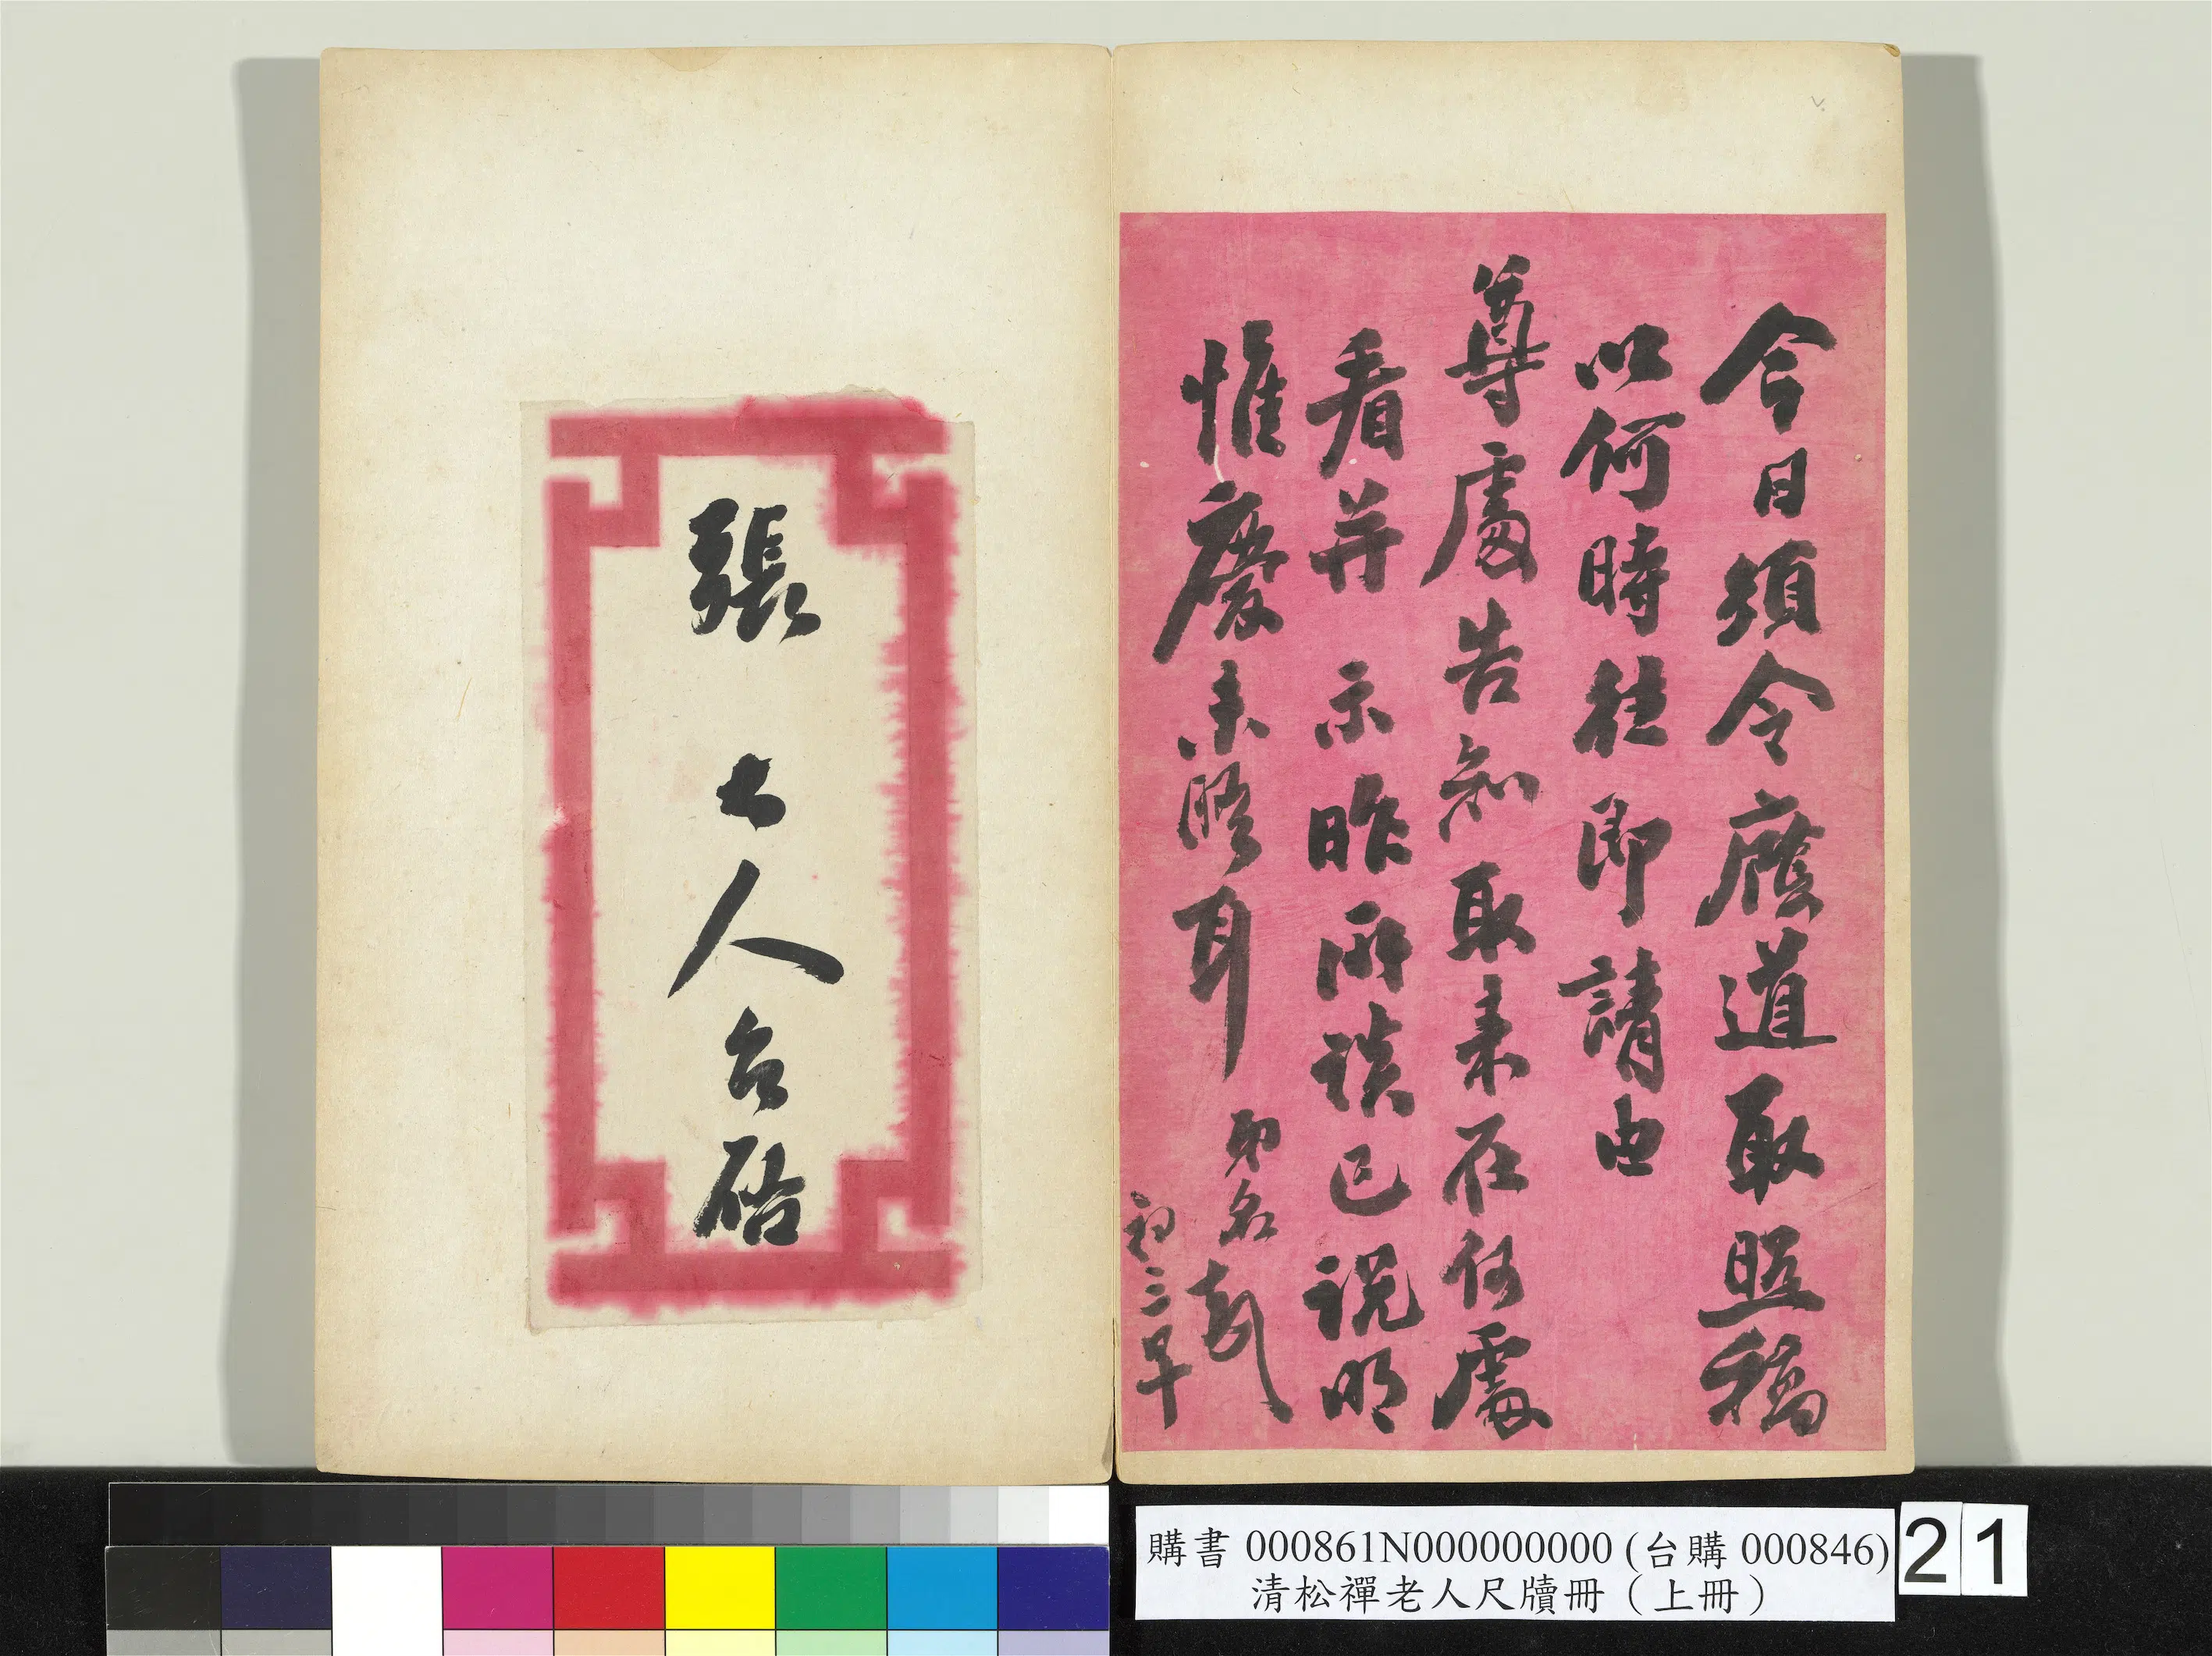 今日須令應道取照稿
以何時往即請由
尊處告知取來在何處
看并示昨所談已說明
惟慶未晤耳 即名 龢
初三早
張大人台啟
購書 000861N000000000 (台購 000846)
清松禪老人尺牘冊（上冊）
21